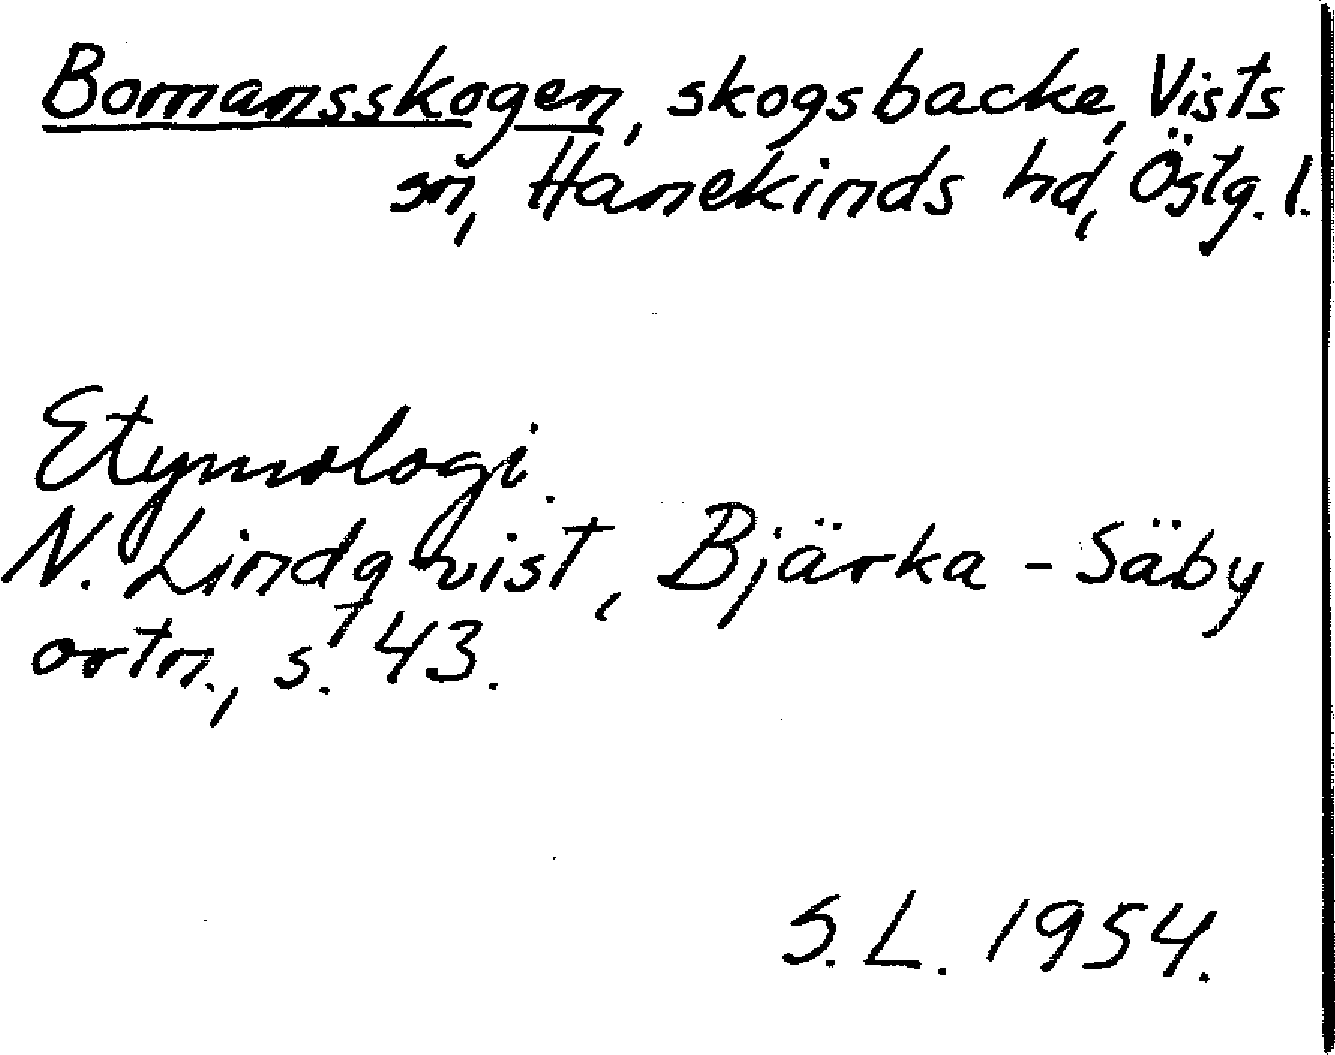 Bomansskogen, skogsbacke, Vists
sn, Hanekinds hd, Östg. l.
Etymologi.
N. Lindqvist, Bjärka-Säby
ortn., s. 43.
S. L. 1954.